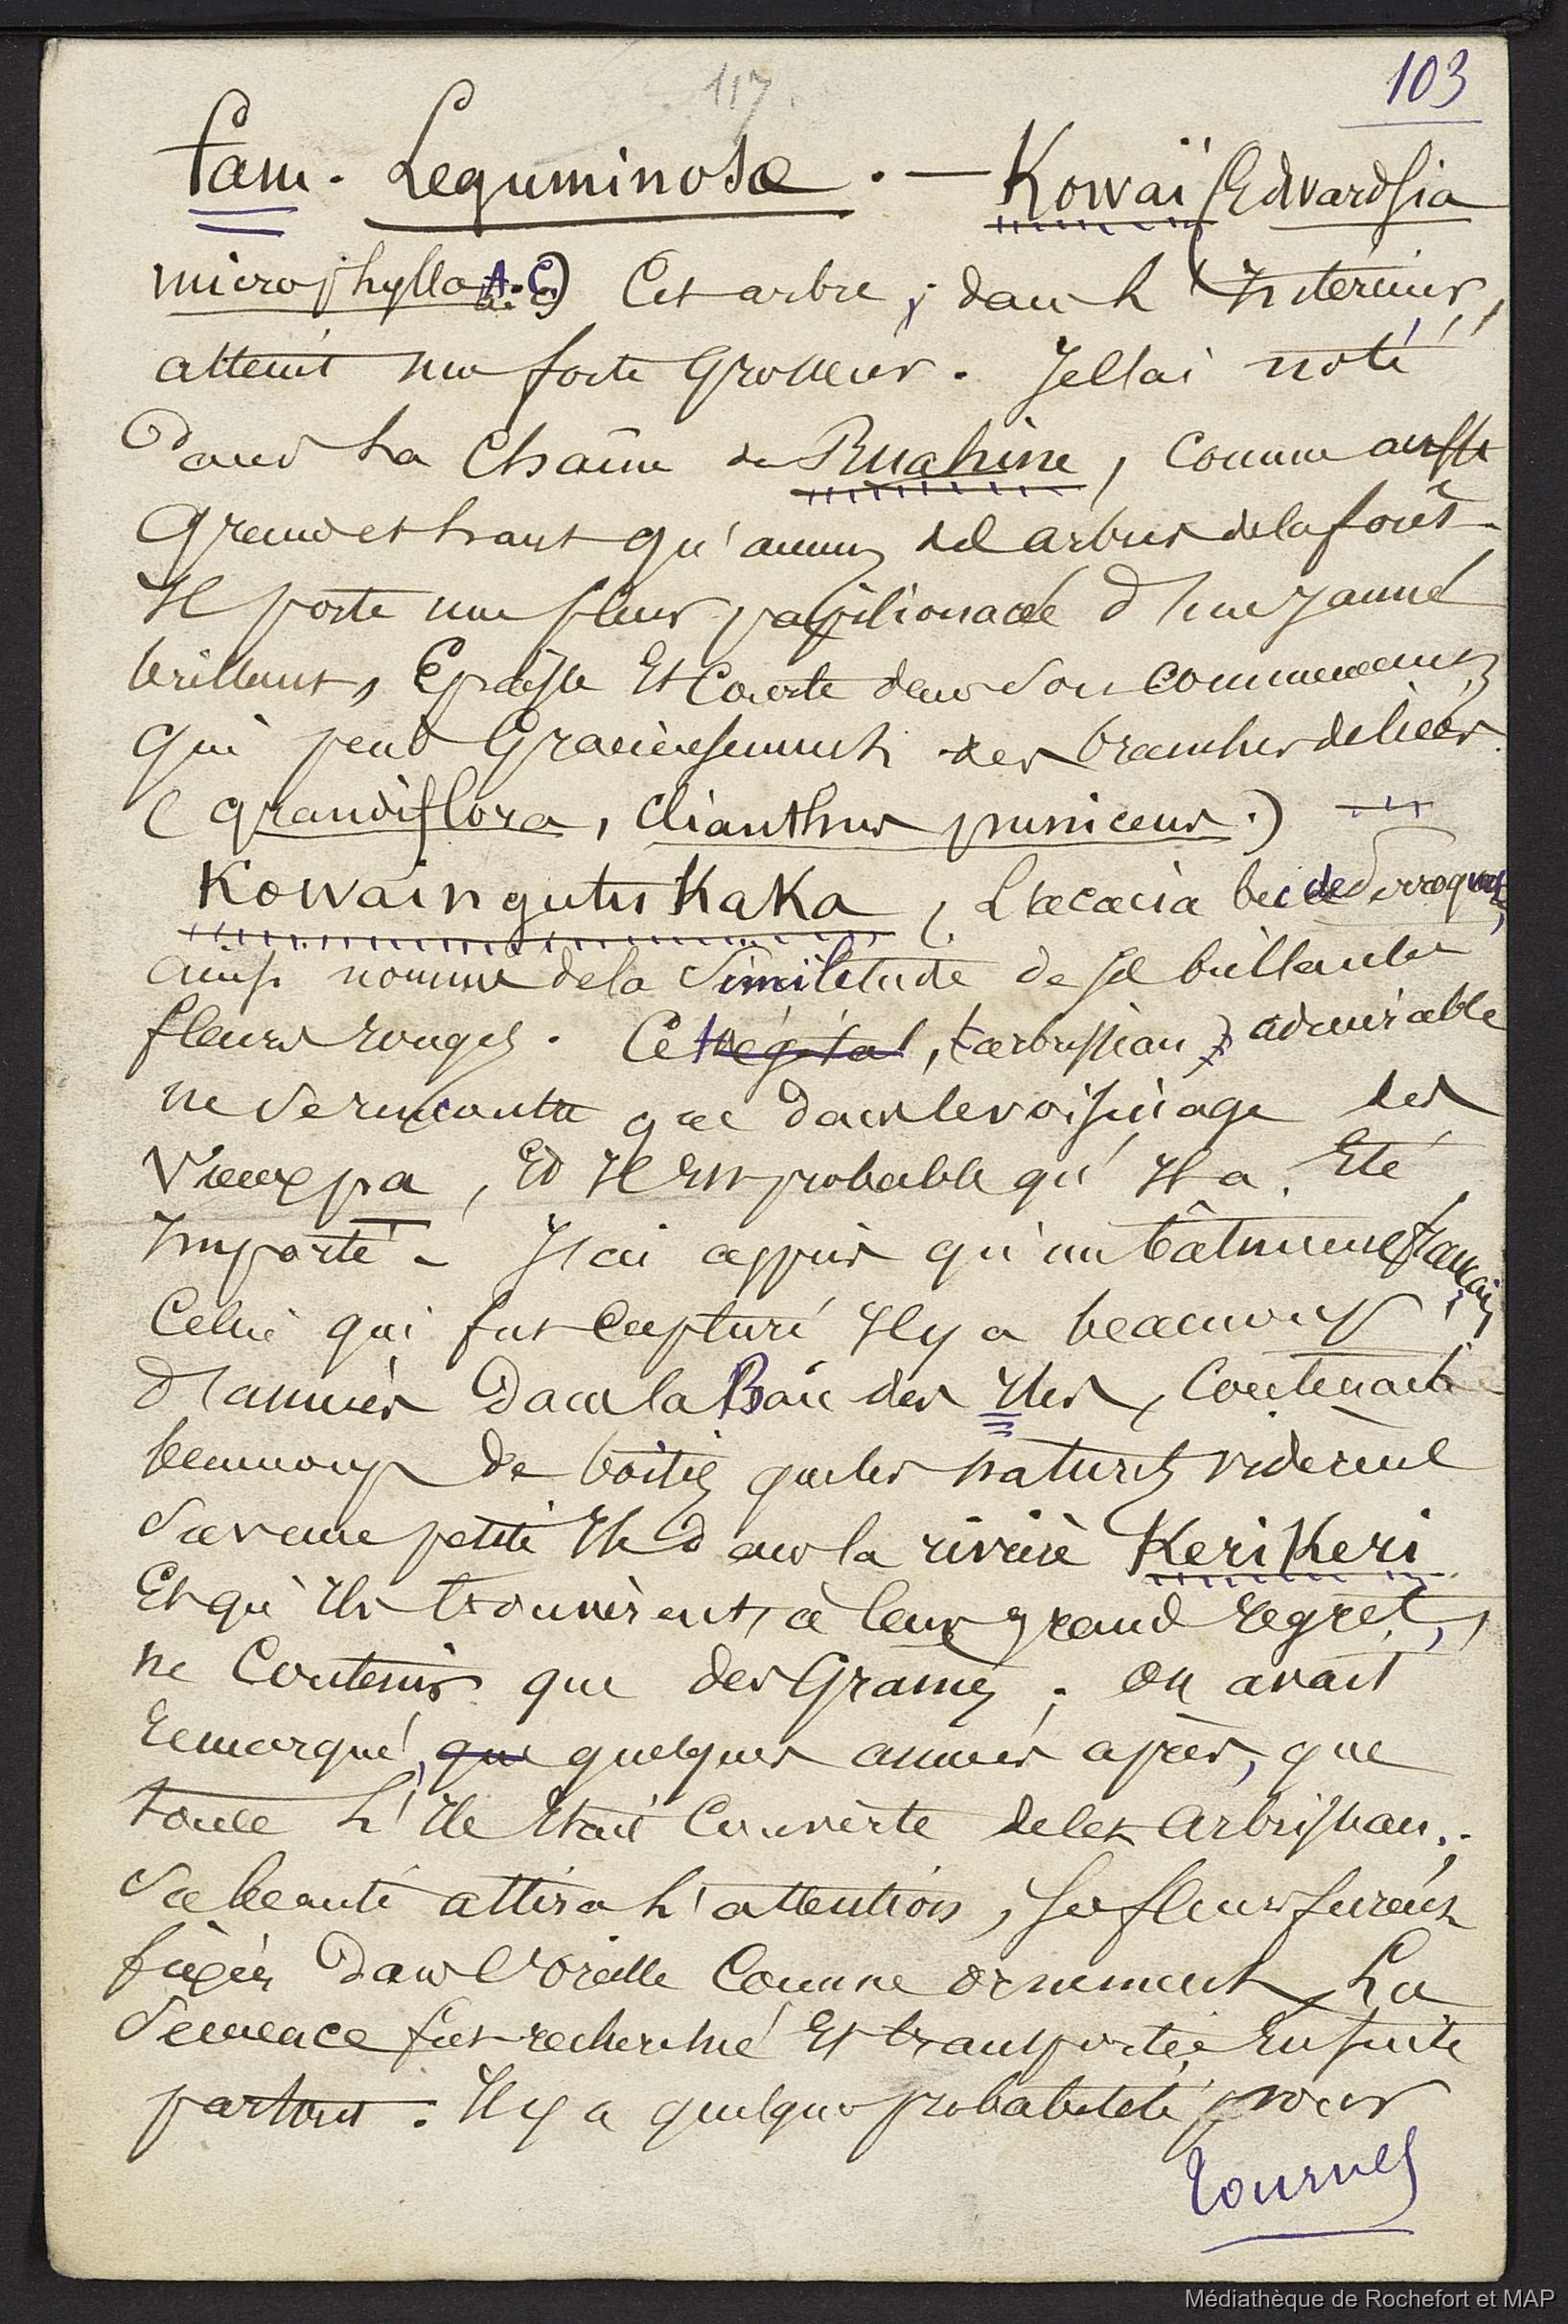 117.
103
fam. Leguminosæ. — Kowaï (Edwardsia
microphylla A. C.) Cet arbre, dans l'Intérieur,
atteint une forte Grosseur. Je l'ai noté
Dans La Chaîne de Ruahine, Comme aussi
Grand et haut qu'aucun des arbres de la forêt.
Il porte une fleur papilionacée d'une Jaune
brillant, Epaisse Et Courte dans son commencement
qui pend Gracieusement des branches deliées
(grandiflora, Clianthus puniceus.) —
Kowaingutu KaKa, (L'acacia bec de Perroquet,
ainsi nommé de la Similitude de ses brillantes
fleurs rouges. Cet végétal, (arbrisseau) admirable
ne se rencontre que dans le voisinage des
Vieux pa, Et Il Est probable qu'Il a Eté
Importé. J'ai appris qu'un bâtiment français
Celui qui fut Capturé Il y a beaucoup
d'années Dans la Baie des Iles, Contenait
beaucoup de boites que les naturels vidèrent
Sur une petite Ile dans la rivière KeriKeri
Et qu'Ils trouvèrent, à leur grand regret,
ne Contenir que des Graines; On avait
remarqué, que quelques années après, que
toute L'Ile Etait Couverte de cet Arbrisseau.;
Sa beauté attira L'attention, Ses fleurs furent
fixées Dans l'oreille Comme ornement, La
Semence fut recherché Et transportée Ensuite
partout. Il y a quelque probabilité pour
Tournez
Médiathèque de Rochefort et MAP